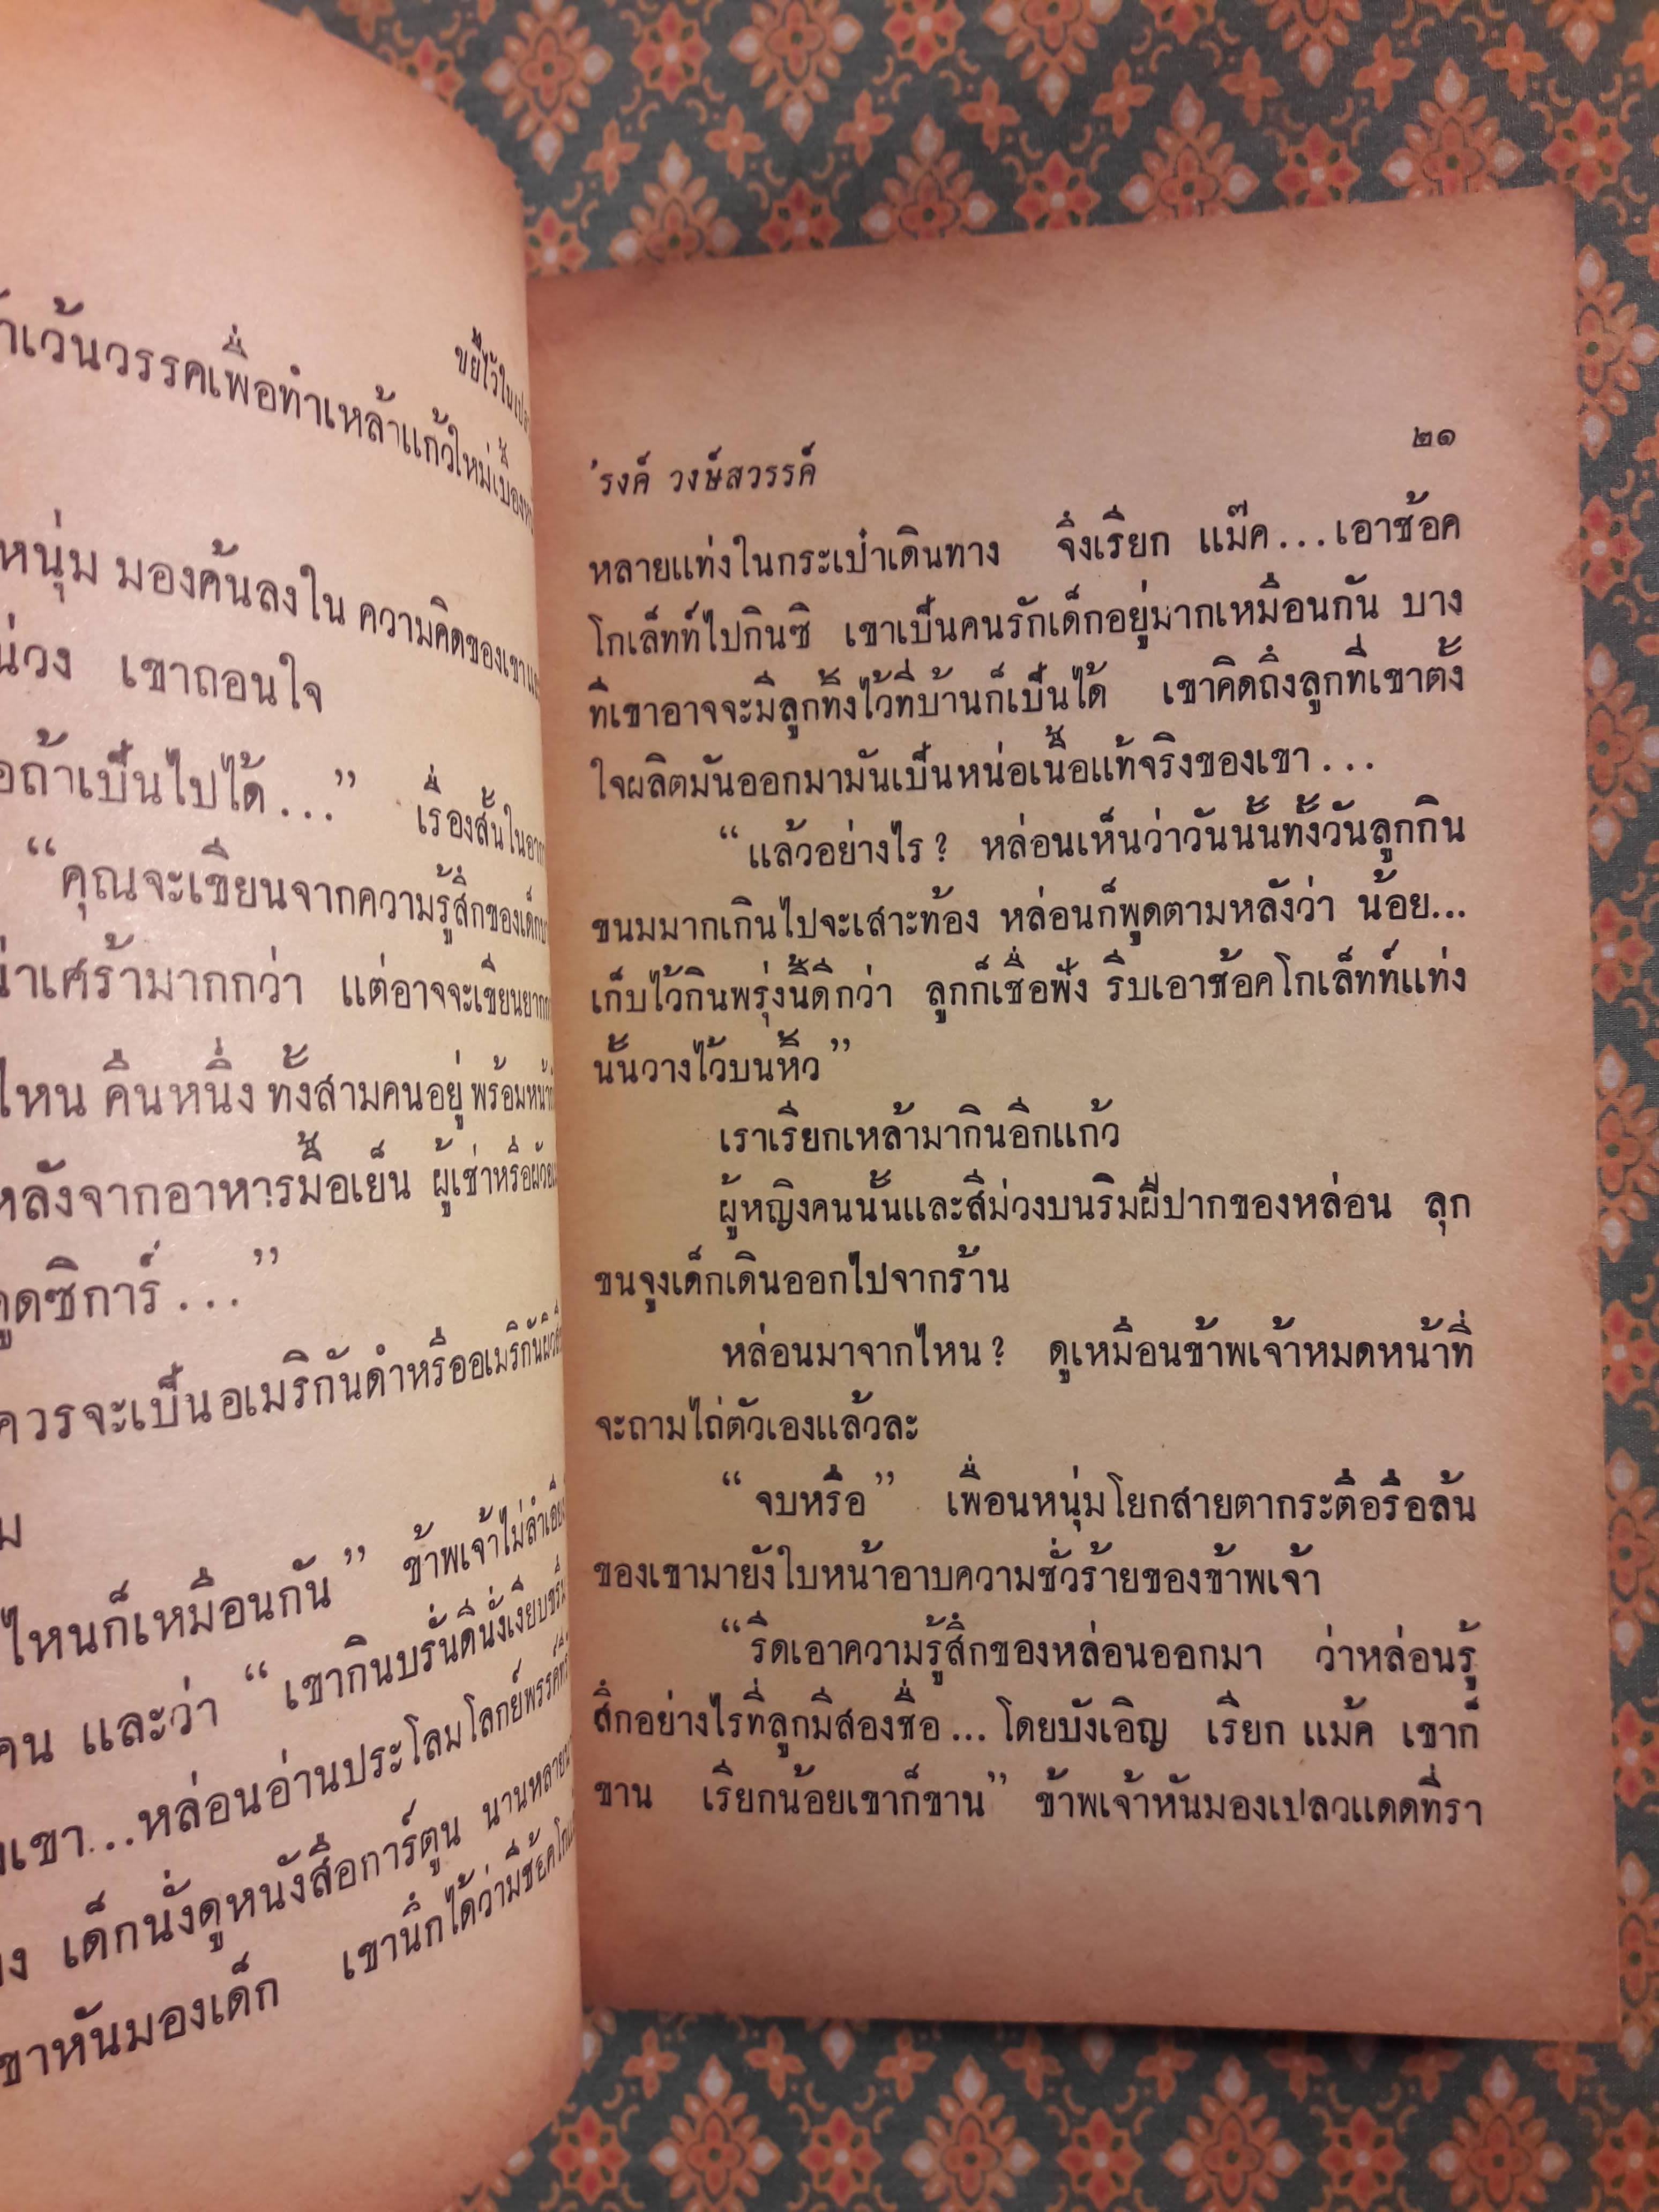 ขยี้ไว้ใน
เว้นวรรคเพื่อทำเหล้าแก้วใหม่
หนุ่ม มองค้นลงใน ความคิดของเขา
ม่วง เขาถอนใจ
ถ้าเป็นไปได้...” เรื่องสั้นใน
“คุณจะเขียนจากความรู้สึกของเด็ก
น่าเศร้ามากกว่า แต่อาจจะเขียนยาก
ไหน คืนหนึ่ง ทั้งสามคนอยู่ พร้อมหน้า
หลังจากอาหารมื้อเย็น ผู้เช่าหรือ
ดูดซิการ์...”
ควรจะเป็นอเมริกันดำหรืออเมริกัน
ไหนก็เหมือนกัน” ข้าพเจ้าไม่
คน และว่า “เขากินบรั่นดีนั่งเงียบ
เขา...หล่อนอ่านประโลมโลกย์
เด็กนั่งดูหนังสือการ์ตูน นานหลาย
เขาหันมองเด็ก เขานึกได้ว่ามี
๒๑
’รงค์ วงษ์สวรรค์
หลายแท่งในกระเป๋าเดินทาง จึงเรียก แม๊ค...เอาช้อค
โกเล็ทท์ไปกินซิ เขาเป็นคนรักเด็กอยู่มากเหมือนกัน บาง
ทีเขาอาจจะมีลูกทิ้งไว้ที่บ้านก็เป็นได้ เขาคิดถึงลูกที่เขาตั้ง
ใจผลิตมันออกมามันเป็นหน่อเนื้อแท้จริงของเขา...
“แล้วอย่างไร? หล่อนเห็นว่าวันนั้นทั้งวันลูกกิน
ขนมมากเกินไปจะเสาะท้อง หล่อนก็พูดตามหลังว่า น้อย...
เก็บไว้กินพรุ่งนี้ดีกว่า ลูกก็เชื่อฟัง รีบเอาช้อคโกเล็ทท์แท่ง
นั้นวางไว้บนหิ้ว”
เราเรียกเหล้ามากินอีกแก้ว
ผู้หญิงคนนั้นและสีม่วงบนริมฝีปากของหล่อน ลุก
ขนจูงเด็กเดินออกไปจากร้าน
หล่อนมาจากไหน? ดูเหมือนข้าพเจ้าหมดหน้าที่
จะถามไถ่ตัวเองแล้วละ
“จบหรือ” เพื่อนหนุ่มโยกสายตากระตือรือล้น
ของเขามายังใบหน้าอาบความชั่วร้ายของข้าพเจ้า
“รีดเอาความรู้สึกของหล่อนออกมา ว่าหล่อนรู้
สึกอย่างไรที่ลูกมีสองชื่อ... โดยบังเอิญ เรียก แม้ค เขาก็
ขาน เรียกน้อยเขาก็ขาน” ข้าพเจ้าหันมองเปลวแดดที่รา